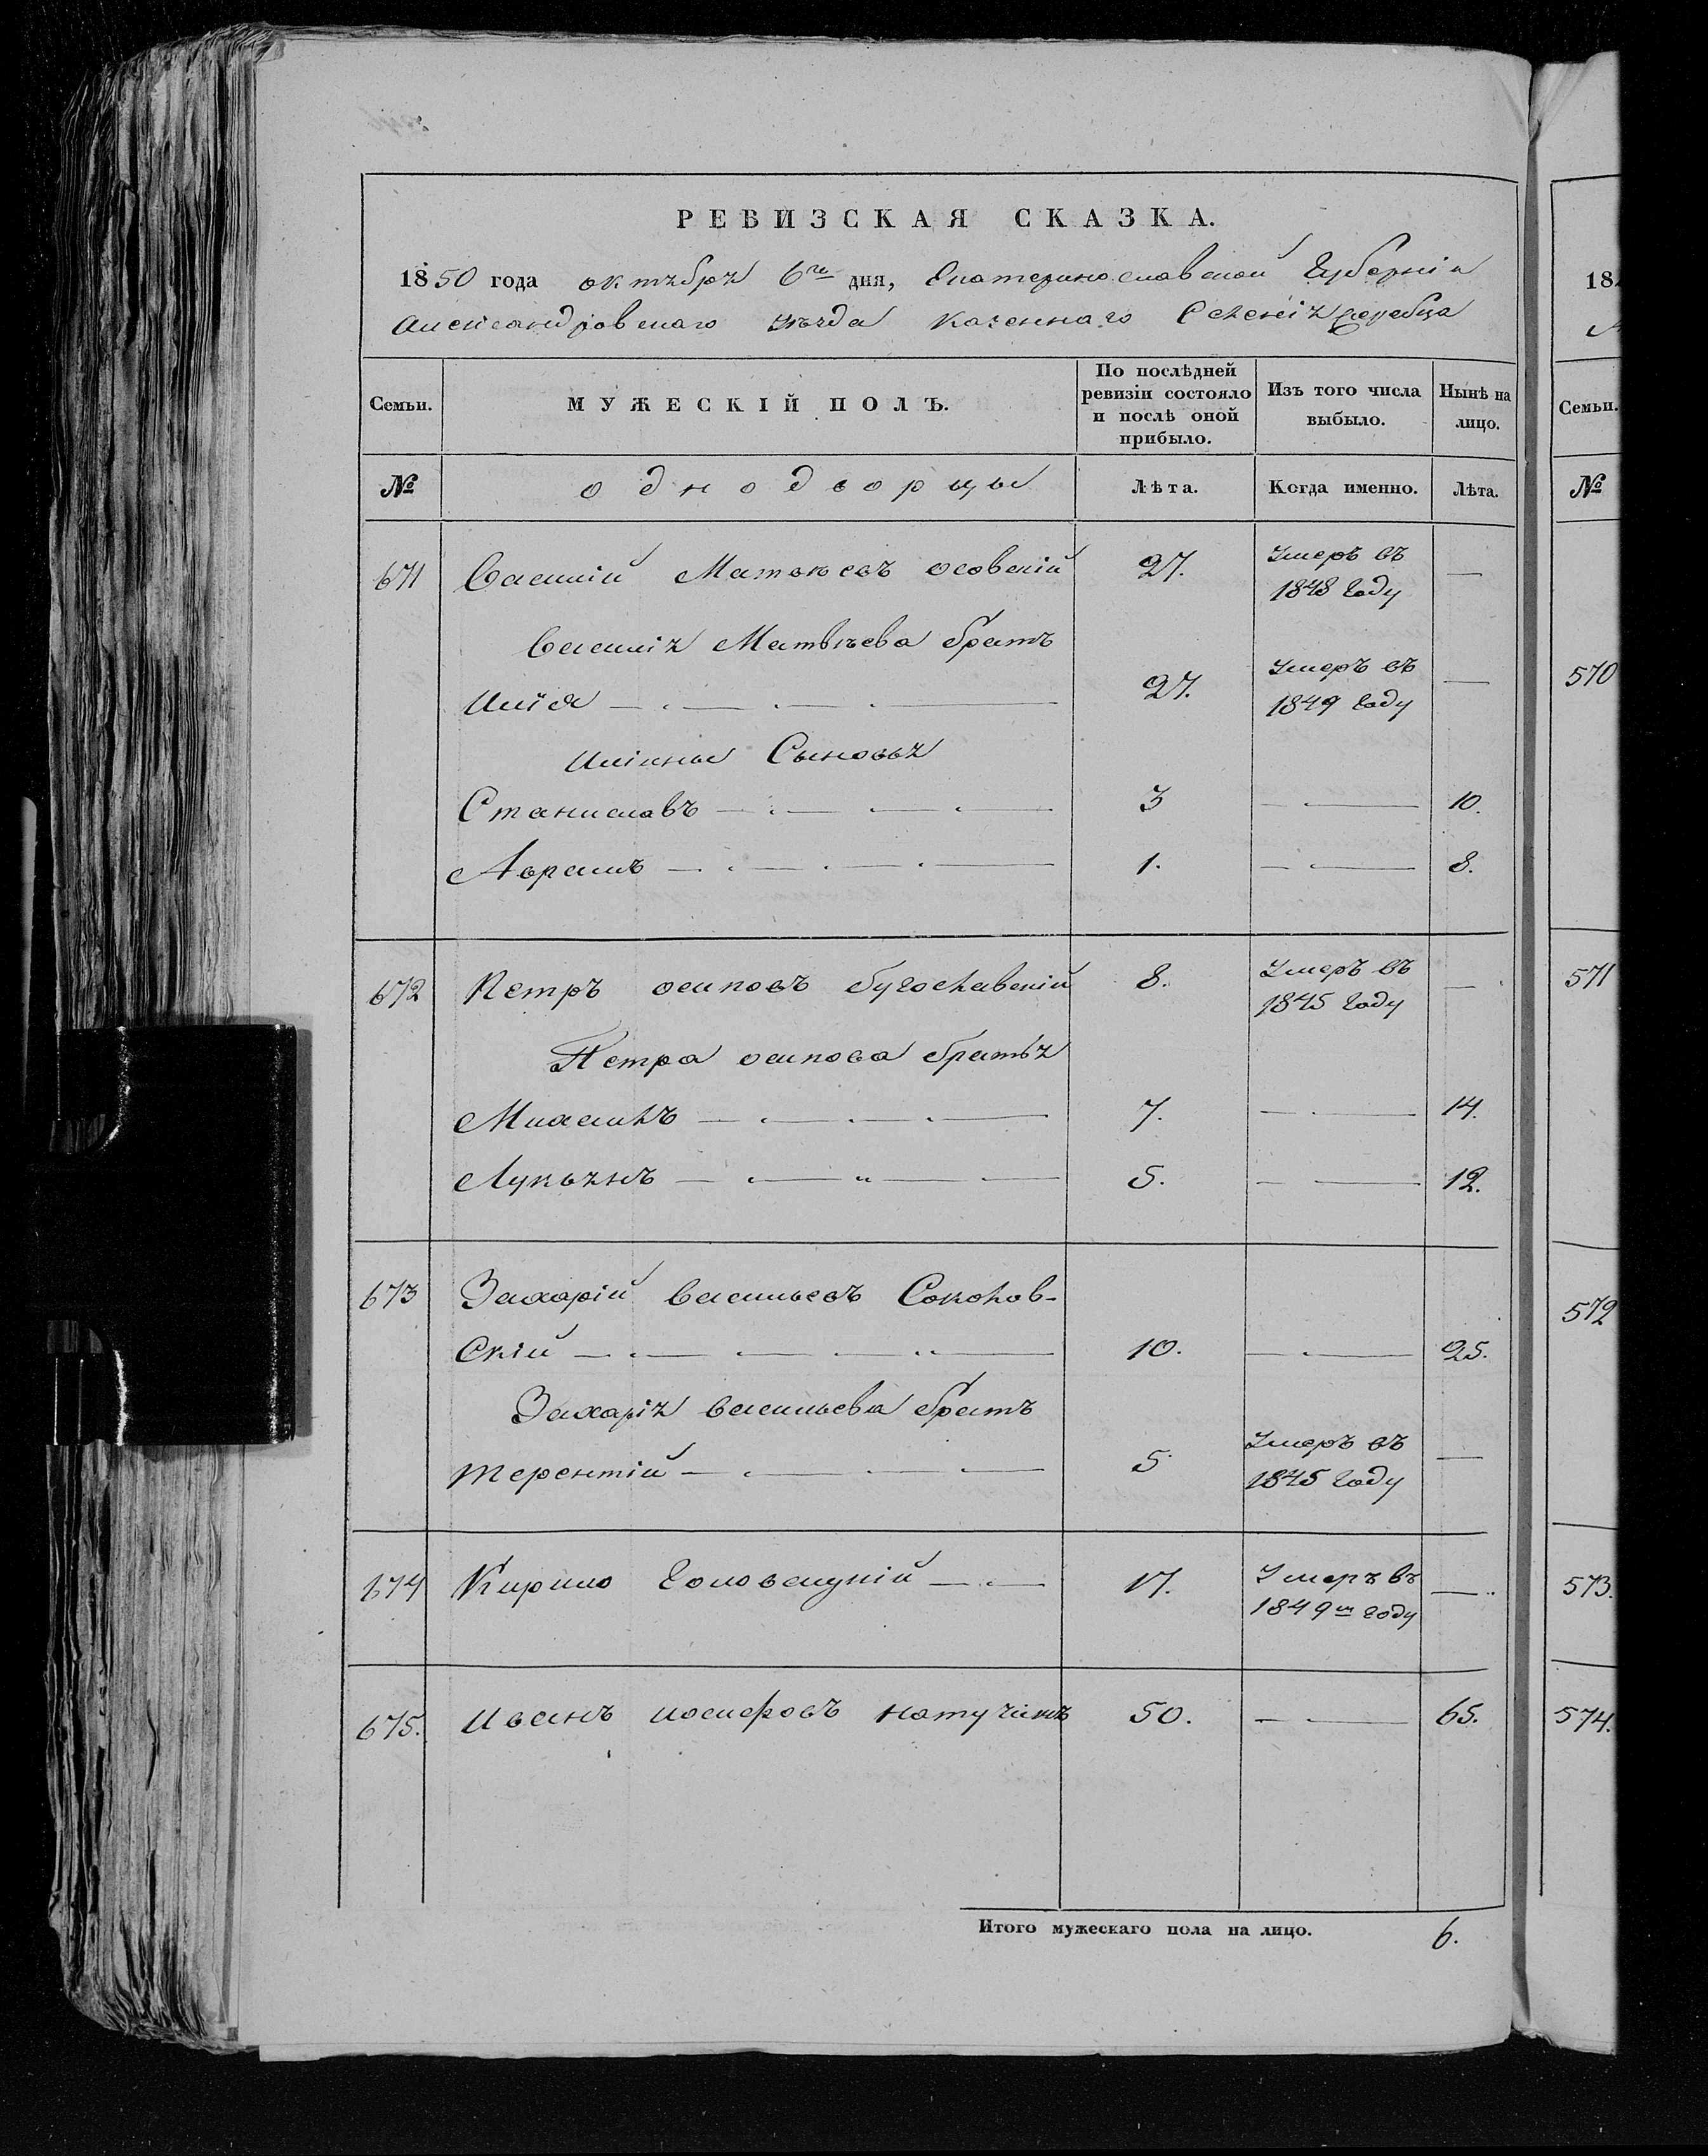 РЕВИЗСКАЯ СКАЗКА.
1850 года октября 6го дня, Екатеринославской Губерніи
Александровскаго уѣзда казеннаго Селенія Жеребца
Семьи.
МУЖЕСКІЙ ПОЛЪ.
По послѣдней ревизіи состояло и послѣ оной прибыло.
Изъ того числа выбыло.
Нынѣ на лицо.
№ однодворцы Лѣта. Когда именно. Лѣта.
671 Василій Матвѣевъ осовскій 27. Умеръ въ 1848 Году —
Василія Матвѣева братъ
Илія 27. Умеръ въ 1849 Году —
Иліины Сыновья
Станиславъ 3 — 10.
Аврамъ 1. — 8.
672 Петръ осиповъ бугославскій 8. Умеръ въ 1845 Году —
Петра осипова братья
Михаилъ 7. — 14.
Лукьянъ 5. — 12.
673 Захарій васильевъ Соколов-
Скій 10. — 25.
Захарія васильева братъ
терентій 5. Умеръ въ 1845 Году —
674 Кирило 17. Умеръ въ 1849м году —
675. иванъ иосифовъ 50. — 65.
Итого мужескаго пола на лицо. 6.
18
Семьи.
№
570
571
572
573.
574.